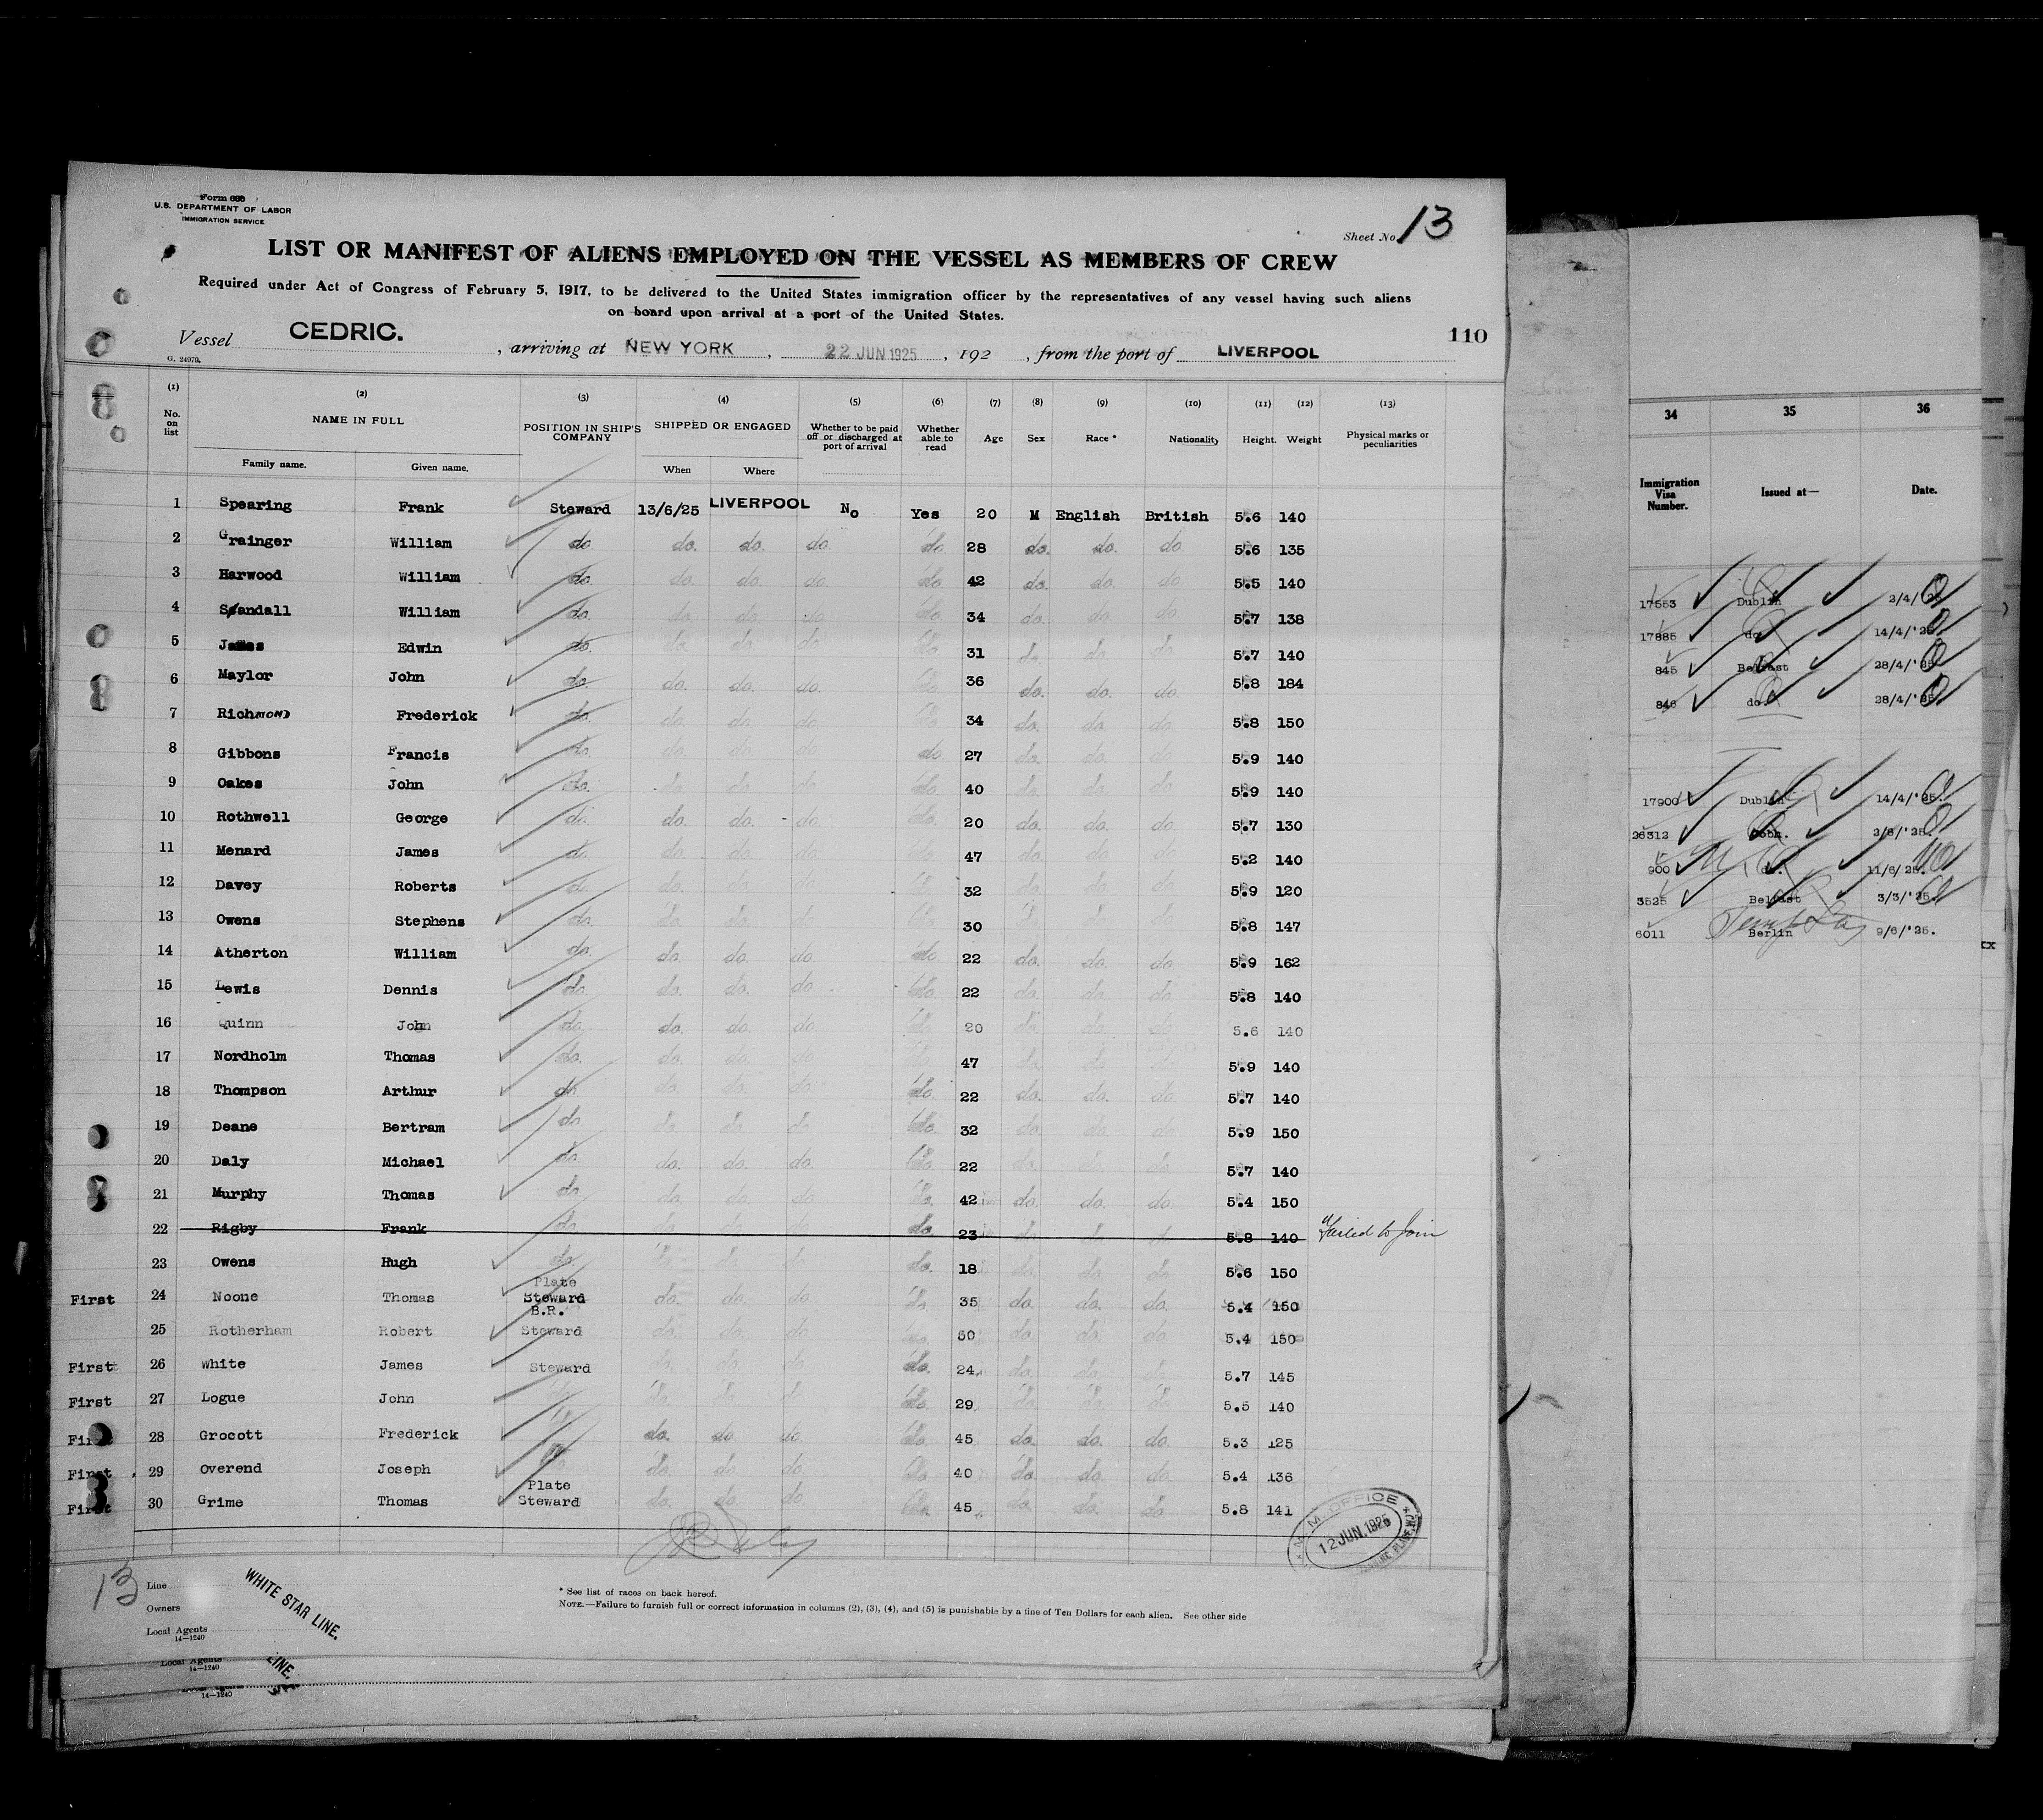 Form 680
U.S. DEPARTMENT OF LABOR
IMMIGRATION SERVICE
Sheet No. 13
LIST OR MANIFEST OF ALIENS EMPLOYED ON THE VESSEL AS MEMBERS OF CREW
Required under Act of Congress of February 5, 1917, to be delivered to the United States immigration officer by the representatives of any vessel having such aliens
on board upon arrival at a port of the United States.
110
Vessel CEDRIC. , arriving at NEW YORK , 22 JUN 1925 , 192 , from the port of LIVERPOOL
G. 24979.
(1) (2) (3) (4) (5) (6) (7) (8) (9) (10) (11) (12) (13)
No. on list NAME IN FULL POSITION IN SHIP'S COMPANY SHIPPED OR ENGAGED Whether to be paid off or discharged at port of arrival Whether able to read Age Sex Race * Nationality Height. Weight Physical marks or peculiarities
Family name. Given name. When Where
1 Spearing Frank Steward 13/6/25 LIVERPOOL No Yes 20 M English British 5.6 140
2 Grainger William do. do. do. do. do. 28 do. do. do 5.6 135
3 Harwood William do. do. do. do. do. 42 do. do. do 5.5 140
4 Scandall William do. do. do. do. do. 34 do. do. do 5.7 138
5 James Edwin do. do. do. do do. 31 do. do. do 5.7 140
6 Maylor John do. do. do. do. do. 36 do. do. do. 5.8 184
7 RichMOND Frederick do. do. do. do. do. 34 do. do. do 5.8 150
8 Gibbons Francis do. do. do. do. do 27 do. do. do 5.9 140
9 Oakes John do. do. do. do do. 40 do. do. do 5.9 140
10 Rothwell George do. do. do. do do. 20 do. do. do 5.7 130
11 Menard James do. do. do. do do. 47 do. do. do 5.2 140
12 Davey Roberts do. do. do. do do. 32 do. do. do 5.9 120
13 Owens Stephens do. do. do. do do. 30 do. do. do 5.8 147
14 Atherton William do. do. do. do. do 22 do. do. do 5.9 162
15 Lewis Dennis do. do. do. do do. 22 do. do. do. 5.8 140
16 Quinn John do. do. do. do do. 20 do. do. do 5.6 140
17 Nordholm Thomas do. do. do. do do. 47 do. do. do 5.9 140
18 Thompson Arthur do do. do. do do. 22 do. do. do. 5.7 140
19 Deane Bertram do do. do. do do. 32 do. do. do 5.9 150
20 Daly Michael do. do. do. do. do. 22 do. do. do 5.7 140
21 Murphy Thomas do. do. do. do do. 42 do. do. do 5.4 150
22 Rigby Frank do. do. do. do do. 23 do. do. do 5.8 140 Failed to Join
23 Owens Hugh do. do. do. do do. 18 do. do. do 5.6 150
Plate
First 24 Noone Thomas Steward do. do. do. do. 35 do. do. do. 5.4 150
B.R.
25 Rotherham Robert Steward do. do. do do. 50 do. do. do. 5.4 150
First 26 White James Steward do. do. do. do. 24 do. do. do. 5.7 145
First 27 Logue John do. do. do. do. do. 29 do. do. do. 5.5 140
First 28 Grocott Frederick do. do. do. do. do. 45 do. do. do. 5.3 125
First 29 Overend Joseph do. do. do. do. do. 40 do. do. do. 5.4 136
Plate
First 30 Grime Thomas Steward do. do. do. do. 45 do. do. do. 5.8 141
M.M. OFFICE
12 JUN. 1925
13
Line
Owners
Local Agents
14—1240
WHITE STAR LINE.
* See list of races on back hereof.
NOTE.—Failure to furnish full or correct information in columns (2), (3), (4), and (5) is punishable by a fine of Ten Dollars for each alien. See other side
Local Agents
14—1240
LINE.
14—1240
34 35 36
Immigration Visa Number. Issued at— Date.
17553 Dublin 2/4/'25
17885 do. 14/4/'25
845 Belfast 28/4/'25
846 do. 28/4/'25
17900 Dublin 14/4/'25.
26312 Cobh. 2/6/'25.
900 do. 11/6/25.
3525 Belfast 3/3/'25.
6011 Berlin 9/6/'25.